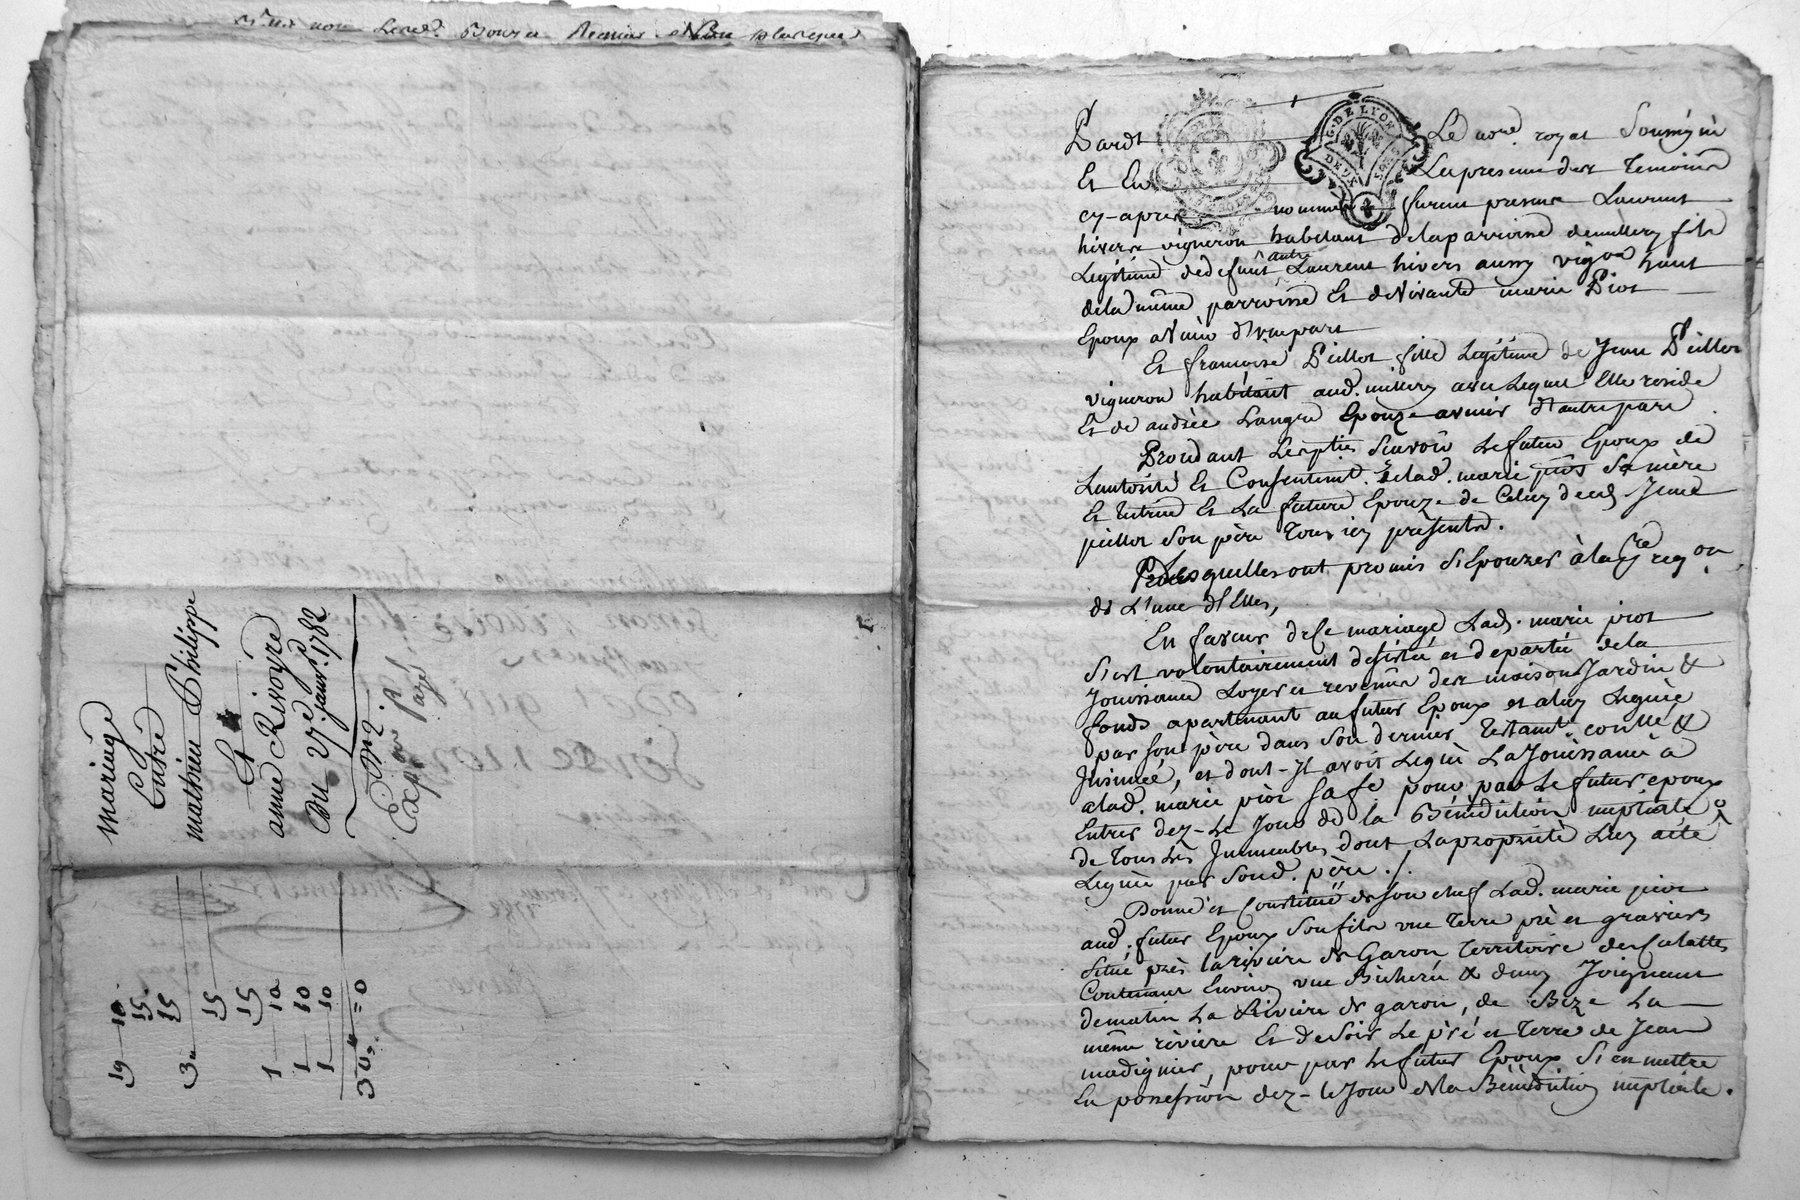 mariage
Entre
mathieu Philippe
Et
anne Rivoyre
Du 27e janvr. 1782
Expn.
Exp pour la page
19 — 10
15
15
3 "
15
15
1 — 10
1 — 10
1 — 10
30 " = 0
G. DE LYON
DEUX SOLS
Pardt Le nore. royal Soussigné
Et En La presence des Temoins
cy-apres nommés furent presens Laurent
hivers vigneron habitant de la parroisse de millery fils
Legitime de defunt autre Laurent hivers aussy vigon hant
de la même parroisse Et de Vivante marie Piot
Epoux avenir d'une part
Et françoise Peillot fille Legitime de Jean Peillot
vigneron habitant aud. millery avec Lequel Elle reside
Et de andrée Langre Epouze avenir d'autre part
Procédant Les pties Scavoir Le futur Epoux de
Lautorité Et Consentemt. de lad. marie piot Sa mère
Et La future Epouze de Celuy de ud. Jean
peillot Son père Tous icy presents.
Lesquelles ont promis S'Epouzer à la pre. reqon
de L'une d'Elles,
En faveur de Ce mariage Lad. marie piot
S'est volontairement desistée et departie de la
Jouissance Loyers et revenus des maison Jardin &
fonds apartenant au futur Epoux et a luy Legués
par Son père dans Son dernier Testamt. conllé &
Jnsinué, et dont-Jl avoit Legué La Jouissance à
alad. marie piot Sa fe pour par Le futur epoux
Entrer dez-Le Jour de la Bénédiction nuptiale
de Tous Les Jmmeubles dont La propriété Luy a été
Leguée par Sond. père ./.
Donne et Constitue de Son chef Lad. marie piot
aud. futur Epoux Son fils une Terre pré et graviers
Situé près la rivière de Garon Territoire des Calattes
Contenant Environ une Bicherée & demy Joignant
de matin La Rivière de garon, de Bize La
même rivière Et de Soir Le pré et Terre de Jean
madignier, pour par Le futur Epoux S'en mettre
En possession dez-le Jour de la Bénédiction nuptiale.